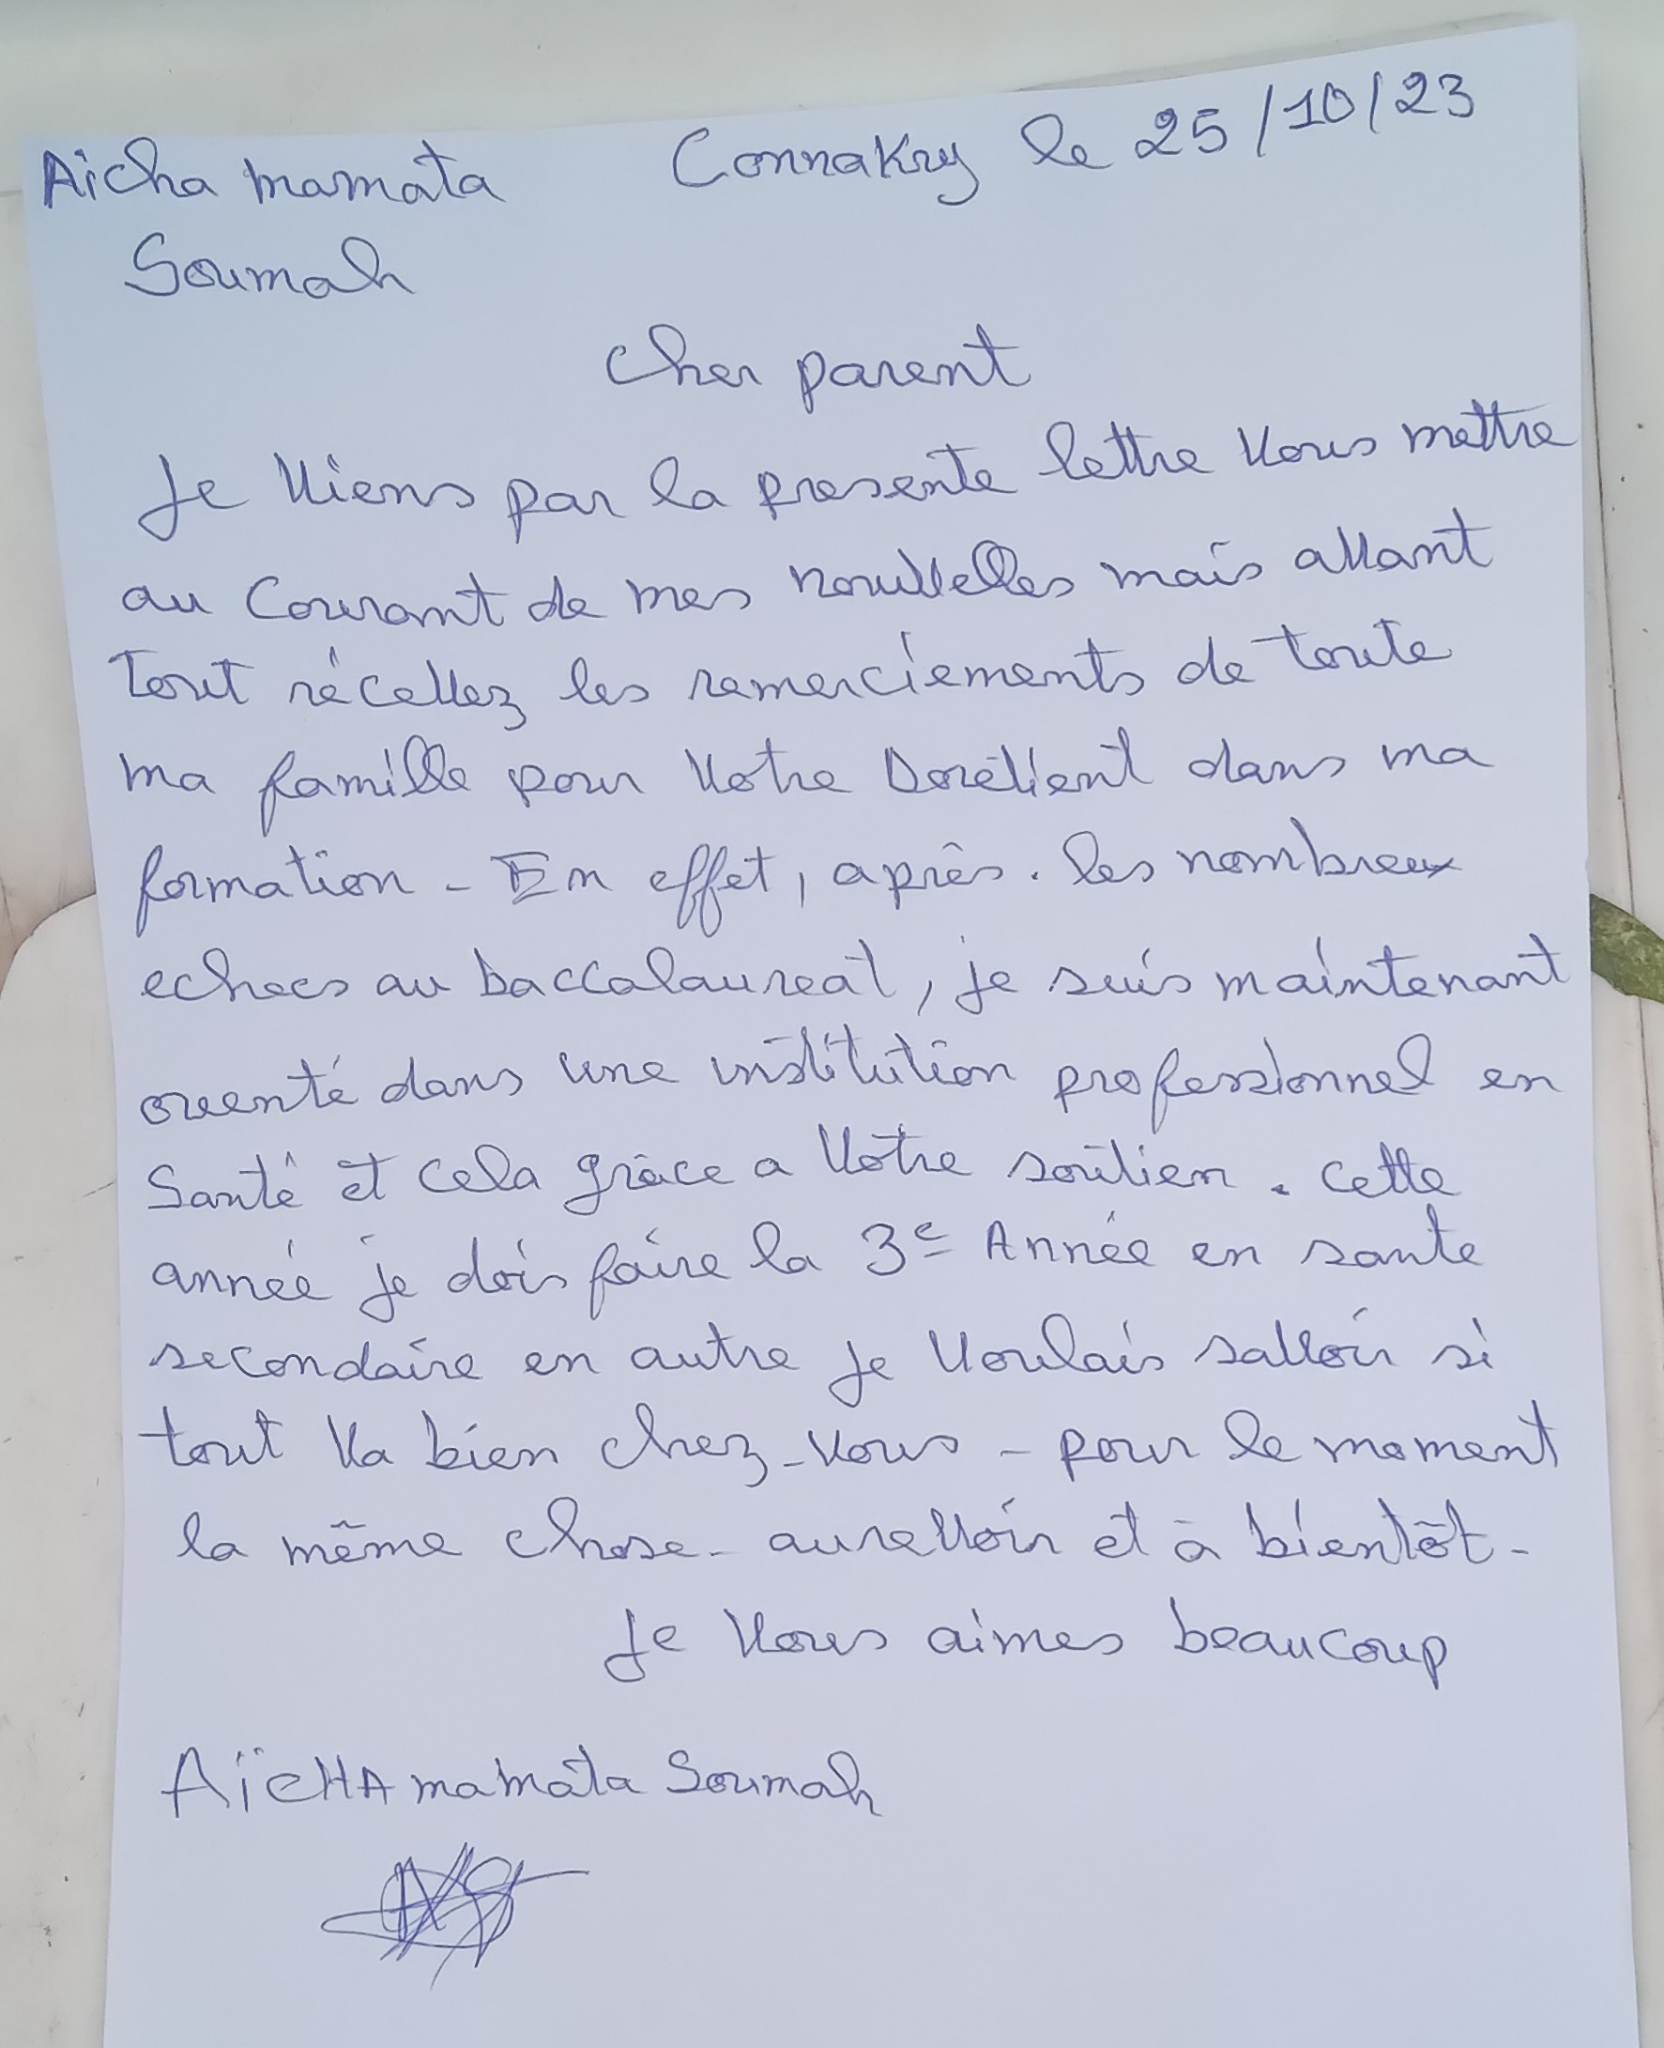 Aicha mamata Connakry le 25/10/23
Soumah
cher parent
Je viens par la presente lettre vous mettre
au courant de mes nouvelles mais avant
tout récevez les remerciements de toute
ma famille pour votre dans ma
formation - En effet, après. les nombreux
echecs au baccalaureat, je suis maintenant
orienté dans une institution professionnel en
Santé et cela grâce a votre soutien. cette
année je dois faire la 3e Année en sante
secondaire en autre je voulais savoir si
tout va bien chez-vous - pour le moment
la même chose - aurevoir et à bientôt -
Je vous aimes beaucoup
AïcHA mamata Soumah